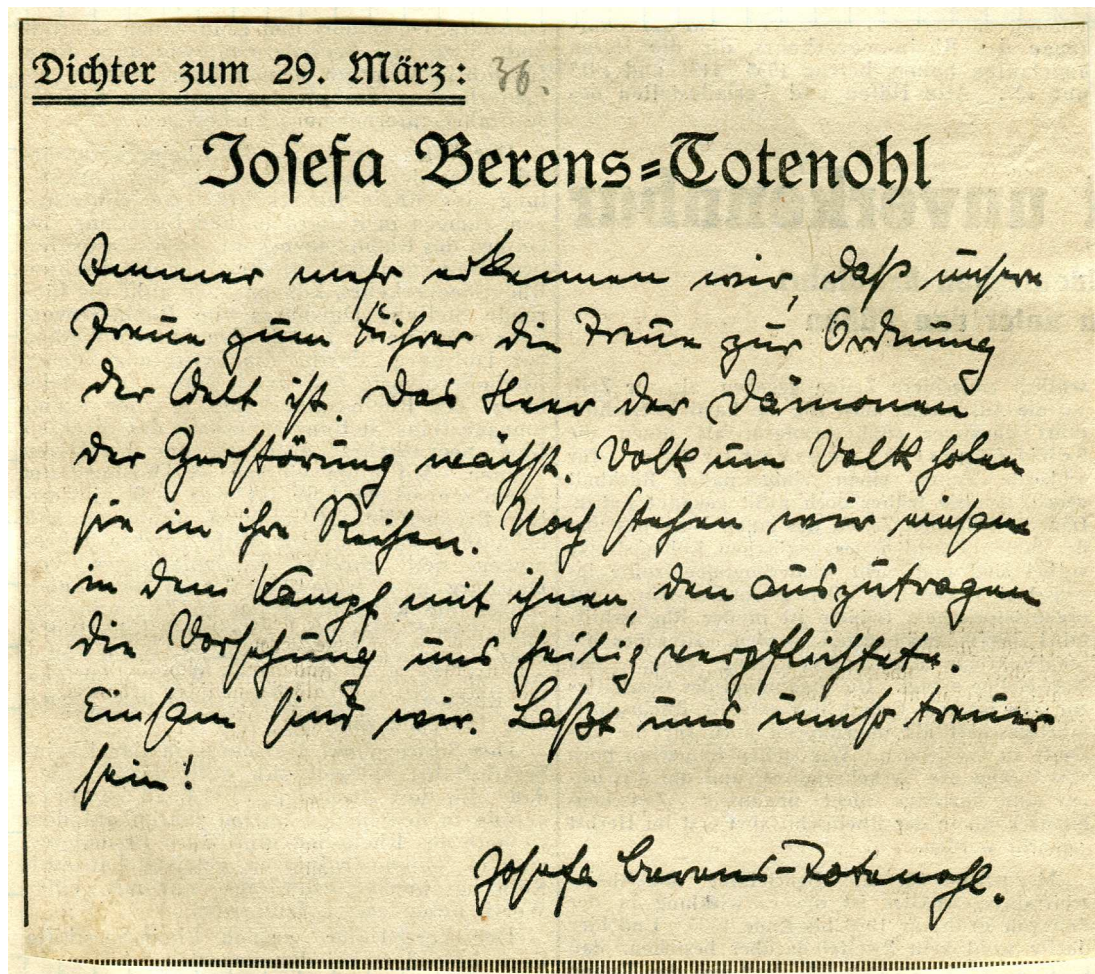 Dichter zum 29. März: 36.
Josefa Berens-Totenohl
Immer mehr erkennen wir, daß unsere
Treue zum Führer die Treue zur Ordnung
der Welt ist. Das Heer der Dämonen
der Zerstörung wächst. Volk um Volk holen
sie in ihre Reihen. Noch stehen wir einsam
in dem Kampf mit ihnen, den auszutragen
die Vorsehung uns heilig verpflichtete.
Einsam sind wir. Laßt uns umso treuer
sein!
Josefa Berens-Totenohl.